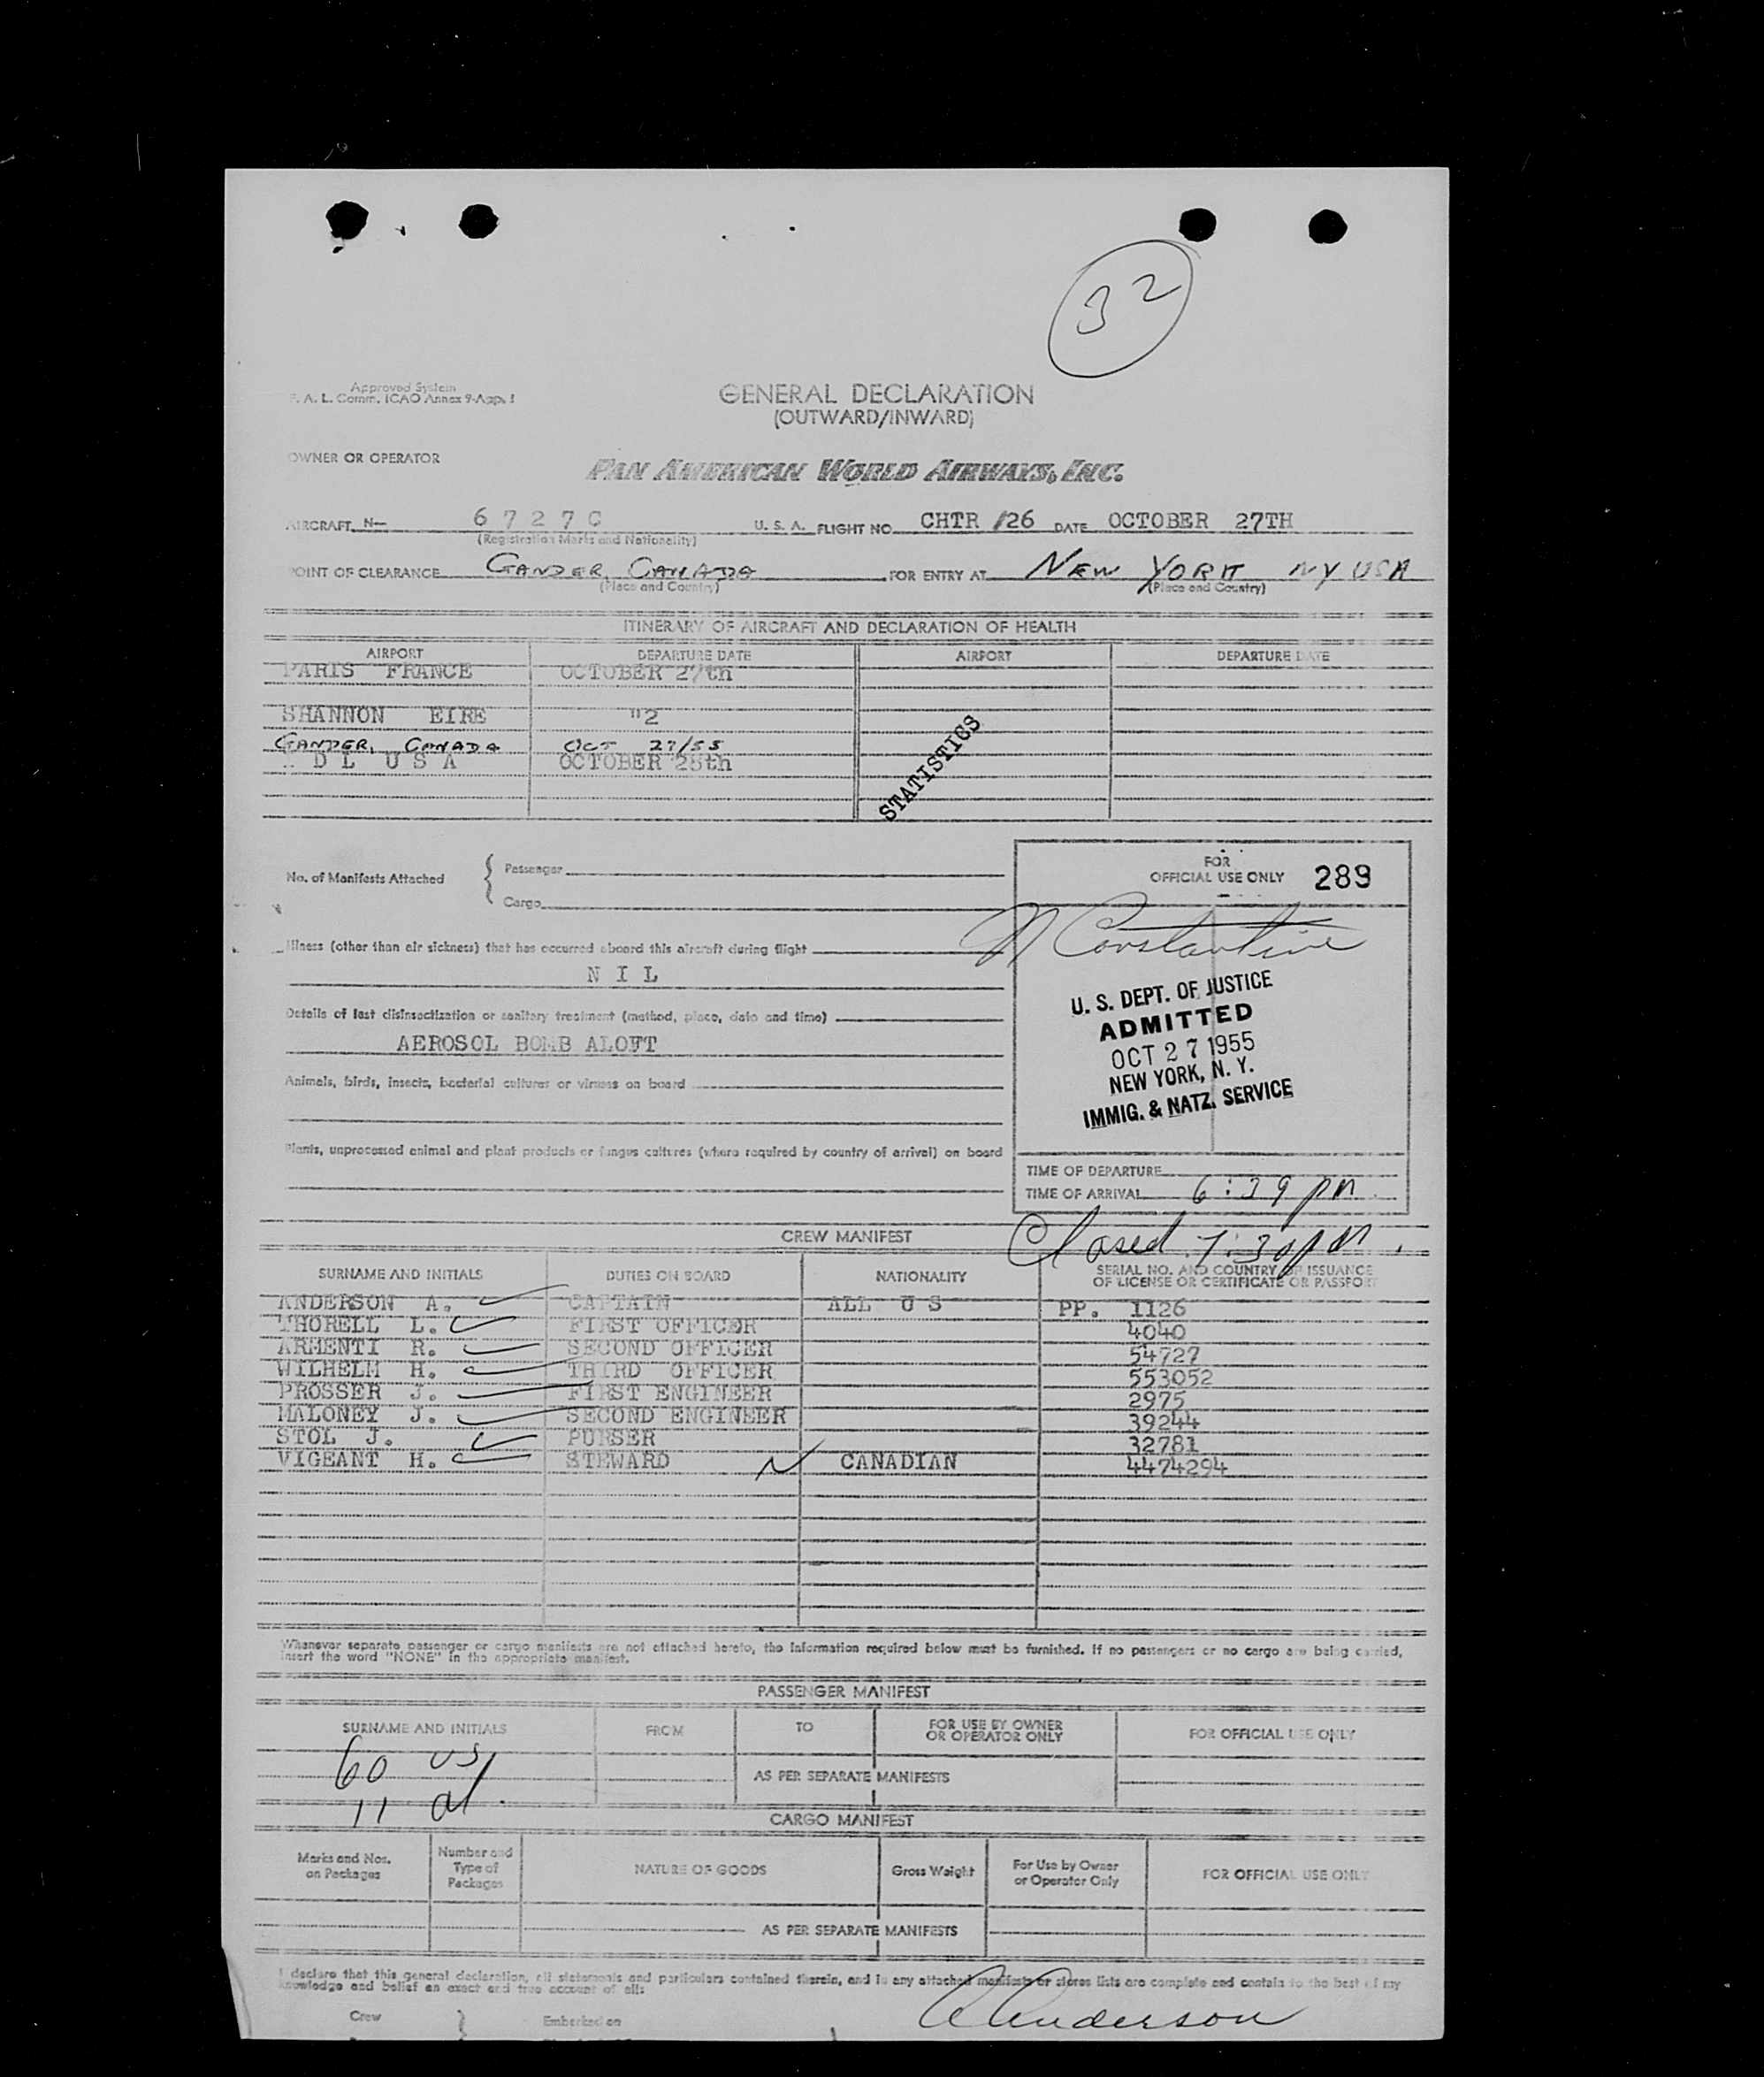 32
Approved System
F. A. L. Comm. ICAO Annex 9-App. 1
GENERAL DECLARATION
(OUTWARD/INWARD)
OWNER OR OPERATOR
PAN AMERICAN WORLD AIRWAYS, INC.
AIRCRAFT N- 6727C U. S. A. FLIGHT NO. CHTR /26 DATE OCTOBER 27TH
(Registration Marks and Nationality)
POINT OF CLEARANCE GANDER, CANADA FOR ENTRY AT NEW YORK NY USA
(Place and Country) (Place and Country)
ITINERARY OF AIRCRAFT AND DECLARATION OF HEALTH
AIRPORT DEPARTURE DATE AIRPORT DEPARTURE DATE
PARIS FRANCE OCTOBER 27th
SHANNON EIRE "2
GANDER, CANADA OCT 27/55
D L U S A OCTOBER 28th
STATISTICS
No. of Manifests Attached { Passenger
Cargo
FOR
OFFICIAL USE ONLY 289
N Constantine
Illness (other than air sickness) that has occurred aboard this aircraft during flight
N I L
Details of last disinsectization or sanitary treatment (method, place, date and time)
AEROSOL BOMB ALOFT
Animals, birds, insects, bacterial cultures or viruses on board
Plants, unprocessed animal and plant products or fungus cultures (where required by country of arrival) on board
U. S. DEPT. OF JUSTICE
ADMITTED
OCT 27 1955
NEW YORK, N. Y.
IMMIG. & NATZ. SERVICE
TIME OF DEPARTURE
TIME OF ARRIVAL 6:39 pm.
Closed 7:30 pm.
CREW MANIFEST
SURNAME AND INITIALS DUTIES ON BOARD NATIONALITY SERIAL NO. AND COUNTRY OF ISSUANCE
OF LICENSE OR CERTIFICATE OR PASSPORT
ANDERSON A. CAPTAIN ALL U S PP. 1126
THORELL L. FIRST OFFICER 4040
ARMENTI R. SECOND OFFICER 54727
WILHELM H. THIRD OFFICER 553052
PROSSER J. FIRST ENGINEER 2975
MALONEY J. SECOND ENGINEER 39244
STOL J. PURSER 32781
VIGEANT H. STEWARD CANADIAN 4474294
Whenever separate passenger or cargo manifests are not attached hereto, the information required below must be furnished. If no passengers or no cargo are being carried,
insert the word "NONE" in the appropriate manifest.
PASSENGER MANIFEST
SURNAME AND INITIALS FROM TO FOR USE BY OWNER
OR OPERATOR ONLY FOR OFFICIAL USE ONLY
60 US
AS PER SEPARATE MANIFESTS
11 al.
CARGO MANIFEST
Marks and Nos.
on Packages Number and
Type of
Packages NATURE OF GOODS Gross Weight For Use by Owner
or Operator Only FOR OFFICIAL USE ONLY
AS PER SEPARATE MANIFESTS
I declare that this general declaration, all statements and particulars contained therein, and in any attached manifests or stores lists are complete and contain to the best of my
knowledge and belief an exact and true account of all:
A Anderson
Crew } Embarked on